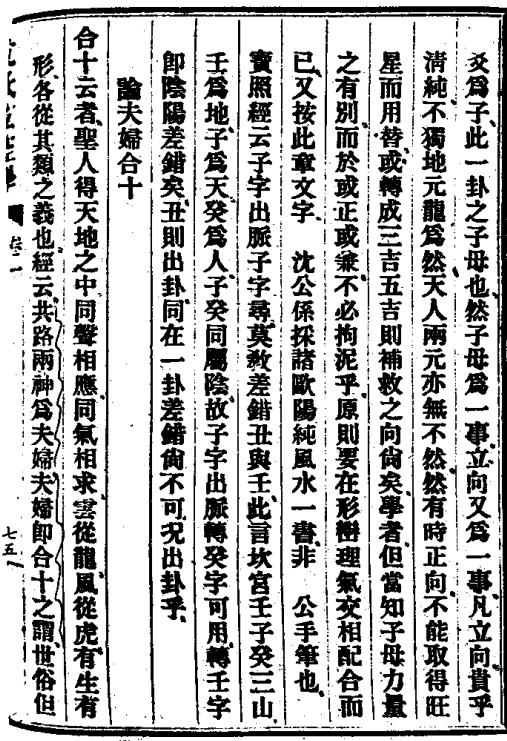 爻爲子、此一卦之子母也、然子母爲一事、立向又爲一事、凡立向貴乎
淸純、不獨地元龍爲然、天人兩元亦無不然、然有時正向、不能取得旺
星而用替、或轉成三吉五吉、則補救之向尙矣、學者但當知子母力量
之有別、而於或正或兼、不必拘泥乎、原則要在形巒理氣交相配合而
已、又按此章文字、 沈公係採諸歐陽純風水一書、非 公手筆也、
寶照經云、子字出脈子字尋、莫敎差錯丑與壬、此言坎宮壬子癸三山、
壬爲地、子爲天、癸爲人、子癸同屬陰、故子字出脈、轉癸字可用、轉壬字
卽陰陽差錯矣、丑則出卦、同在一卦差錯尙不可、况出卦乎、
論夫婦合十
合十云者、聖人得天地之中、同聲相應、同氣相求、雲從龍、風從虎、有生有
形、各從其類之義也、經云、共路兩神爲夫婦、夫婦卽合十之謂、世俗但
卷二
七五